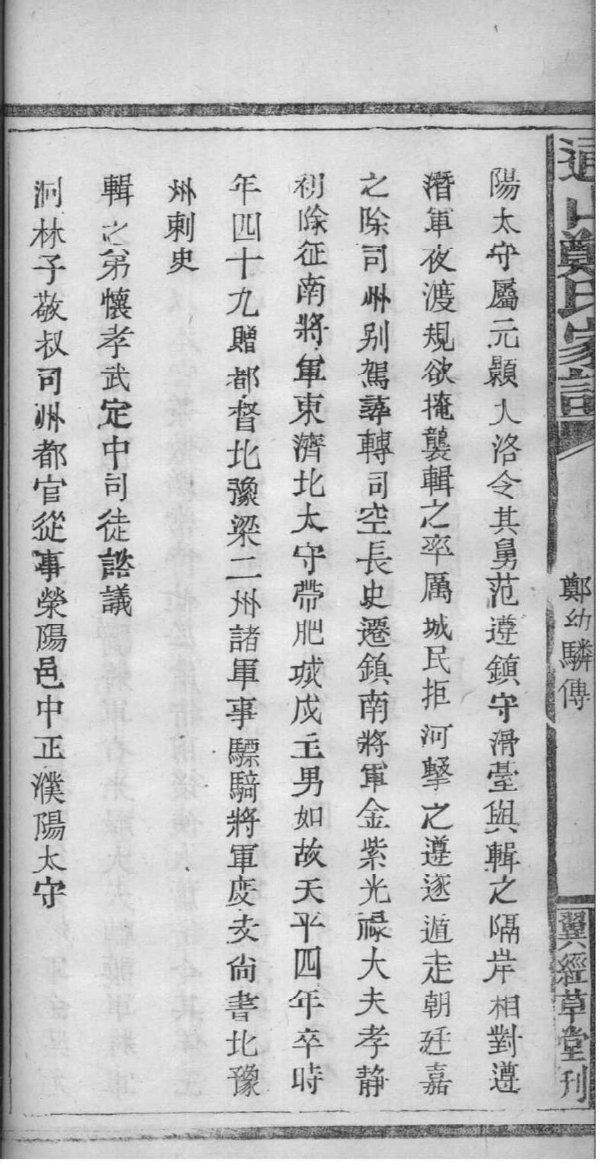 鄭氏家譜
鄭幼驎傳
翼經草堂刊
陽太守屬元顥入洛令其舅范遵鎮守滑臺與輯之隔岸相對遵
潛軍夜渡規欲掩襲輯之率厲城民拒河擊之遵遂遁走朝廷嘉
之除司州别駕尋轉司空長史遷鎮南將軍金紫光祿大夫孝静
初除征南將軍東濟北太守帶肥城戍主男如故天平四年卒時
年四十九贈都督北豫梁二州諸軍事驃騎將軍度支尚書北豫
州刺史
輯之弟懷孝武定中司徒諮議
洞林子敬叔司州都官從事榮陽邑中正濮陽太守